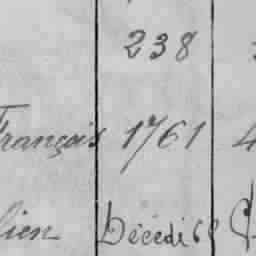 238
François 1761 4
lien Décédé 68